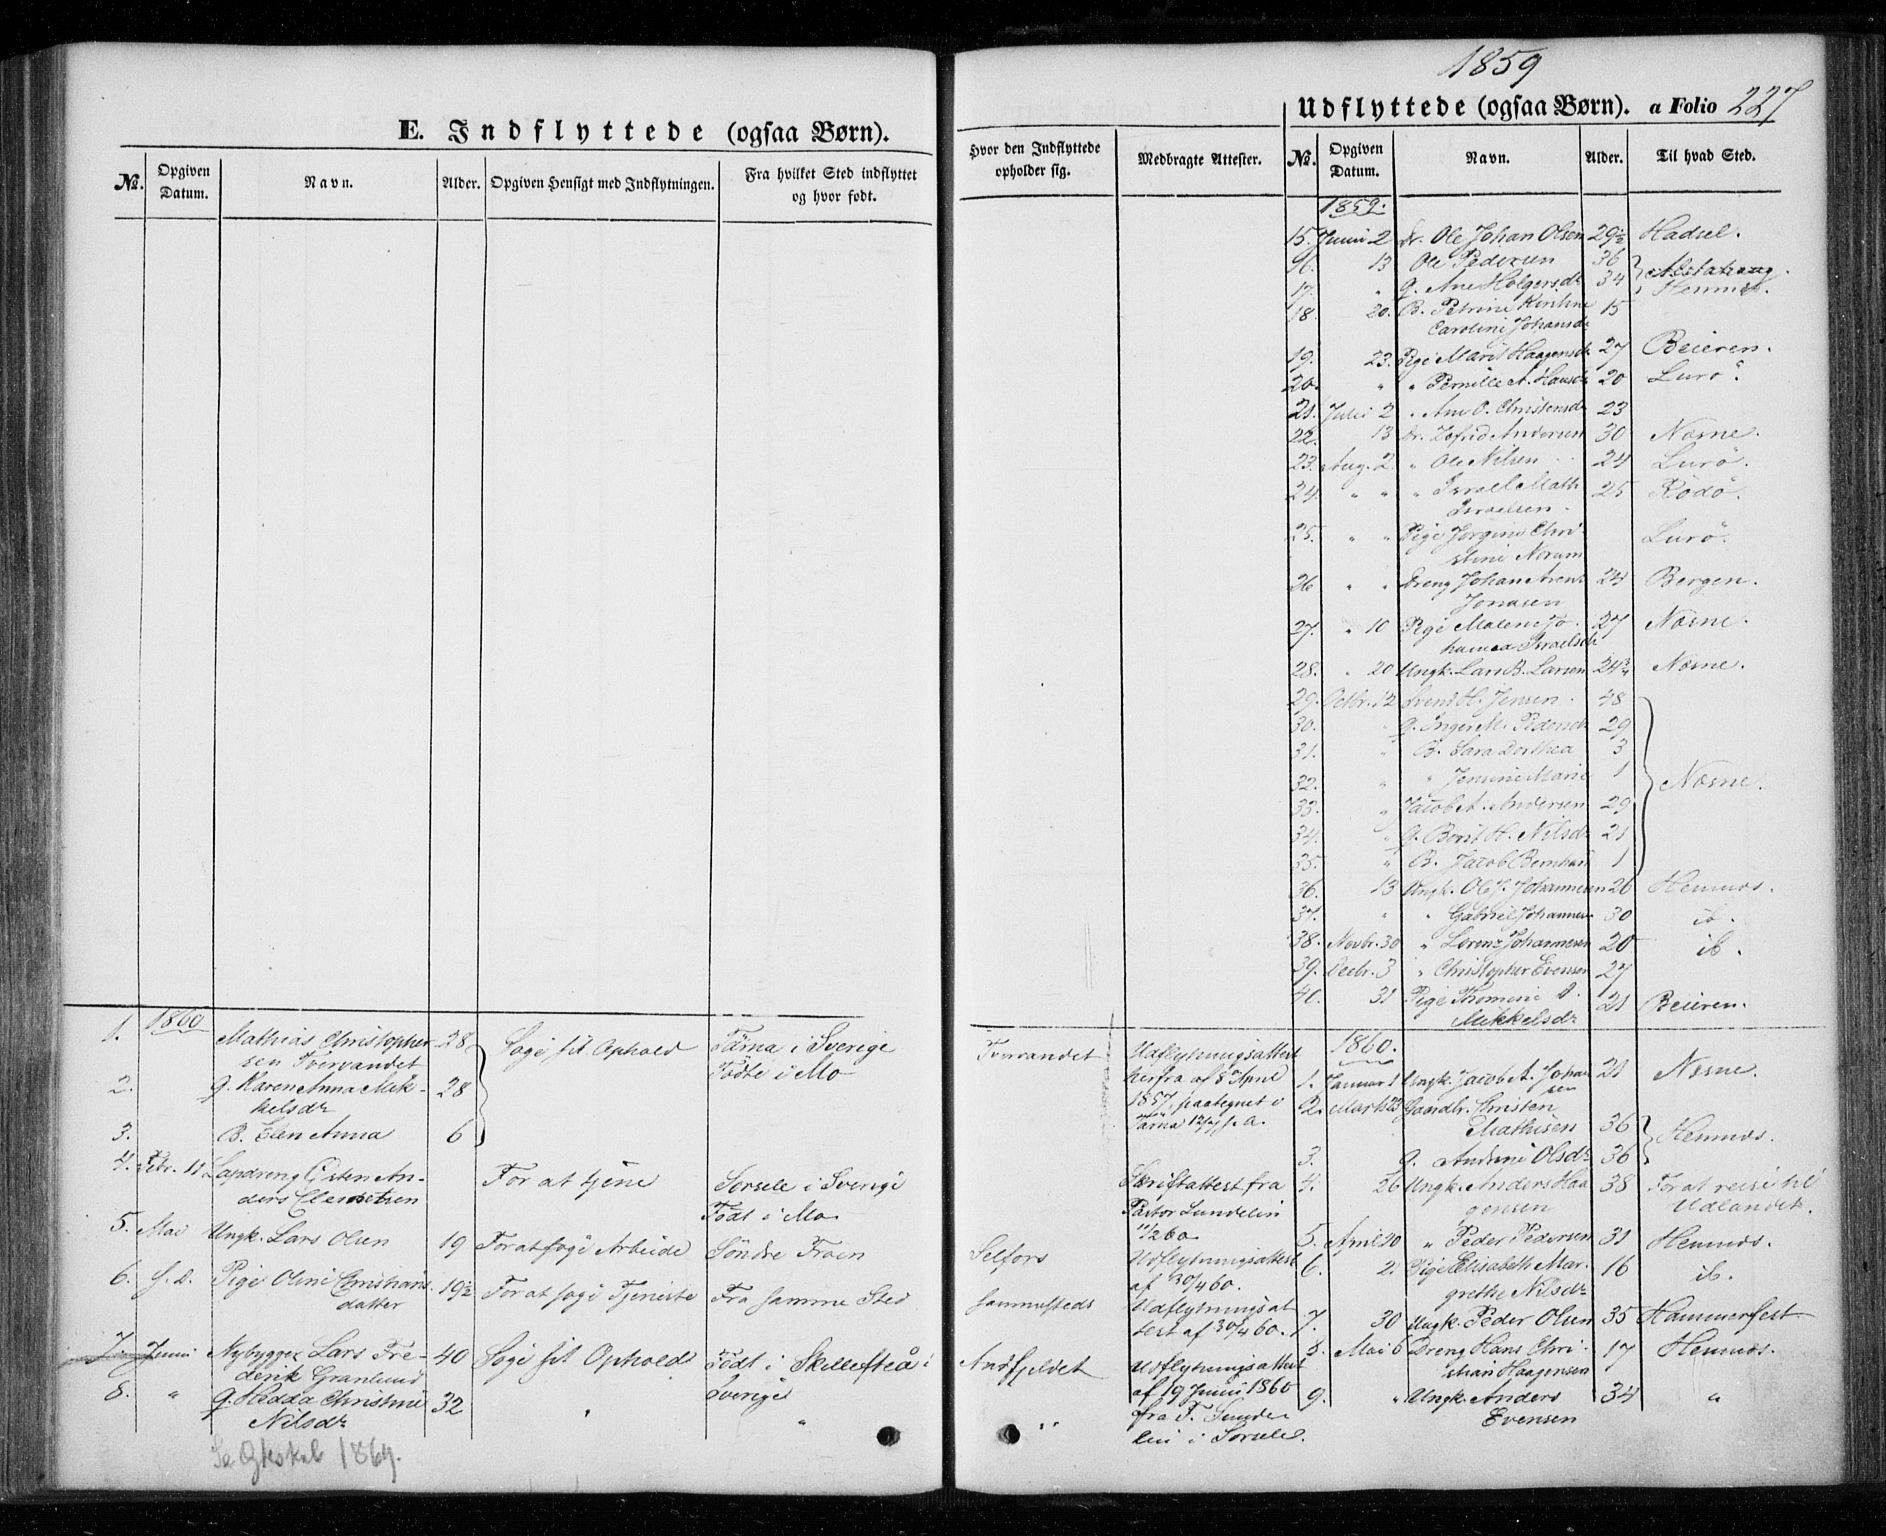 1859
E. Indflyttede (ogsaa Børn).
No. Opgiven Datum. Navn. Alder. Opgiven Hensigt med Indflytningen. Fra hvilket Sted indflyttet og hvor født.
1860
1. Mathias Christopher 28 Søge sit Ophold Tärna i Sverige
sen Tvervandet Födte i Mo
2. g. Karen Anna Mik- 28
kelsdr
3. B. Elen Anna 6
4. Febr. 11 Lapdreng Östen An- For at tjene Sorsele i Sverige
ders Clemetsen Födt i Mo
5. Mai Ungk. Lars Olsen 19 For at søge Arbeide Söndre Froen
6. s. D. Pige Oline Christians 19½ For at søge Tjeneste Fra samme Sted
datter
7. Juni Nybygger Lars Fre- 40 Søge sit Ophold Födt i Skellefteå i
derik Granlund Sverige
8. " g. Hedda Christine 32 " "
Nilsdr
Se Ægteskab 1869.
Udflyttede (ogsaa Børn). a Folio 227
Hvor den Indflyttede opholder sig. Medbragte Attester. No. Opgiven Datum. Navn. Alder. Til hvad Sted.
Tvervandet Udflytningsattest
herfra af 8de April
1857, paategnet i
Tärna
Skriftattest fra
Pastor Lundelin
11/2 60
Selfors Udflytningsattest
af 30/4 60.
sammesteds Udflytningsat
test af 30/4 60.
Andfjeldet Udflytningsattest
af 19 Juni 1860
" fra F. Lunde
lin i Sorsele.
1859.
15. Juni 2 Dr. Ole Johan Olsen 29½ Hadsel.
16. 13 Ole Pedersen 36 Alstahoug.
17. " g. Ane Holgersdr 34 Hemnes.
18. 20. B. Petrine Kirstine 15
Caroline Johansdr
19. 23. Pige Marit Haagensdr 27 Beieren.
20. " " Pernille A. Hansdr 20 Lurö.
21. Juli 2 " Ane O. Christensdr 23
22. 13 Dr. Andersen 30 Næsne.
23. Aug. 2 " Ole Nilsen 24 Lurö.
24. " " " Israel Math 25 Rödö.
Israelsen
25. " " Pige Jorgine Chri- Lurö.
stine Norum
26 " " Dreng Johan Arent 24 Bergen.
Jonasen
27. " 10 Pige Malene Jo- 27 Næsne.
hanna Israelsdr
28. " 20 Ungk. Lars B. Larsen 24¾ Næsne.
29. Octbr. 12 Svend H. Jensen 48
30. " g. Inger M. Pedersdr 29
31. " B. Sara Dorthea 3
32. " " Jensine Marie 1 Næsne.
33. " Jacob A. Andersen 29
34. " g. Berit H. Nilsdr 21
35. " B. Jacob Bernhard 1
36. 13 Ungk. Ole J. Johannesen 26 Hemnes.
37. " " Gabriel Johannesen 30 ib.
38. Novbr. 30 " Lorenz Johannesen 20 ib.
39. Decbr. 3 " Christopher Evensen 27
40. 31 Pige Thomine 21 Beieren.
Mikkelsdr
1860.
1. Januar 1 Ungk. Jacob A. Johan 21 Næsne.
sen
2. Marts 23 Gaardbr. Christen
Mathisen 36 Hemnes.
3. g. Andrine Olsdr 36
4. 26 Ungk. Anders Haa 38 For at reise til
gensen Udlandet.
5. April 20 " Peder Pedersen 31 Hemnes.
6. 2. Pige Elisabeth Mar- 16 ib.
grethe Nilsdr
7. 30 Ungk. Peder Olsen 35 Hammerfest
8. Mai 6 Dreng Hans Chri- 17 Hemnes.
stian Haagensen
9. " Ungk. Anders 34 "
Evensen